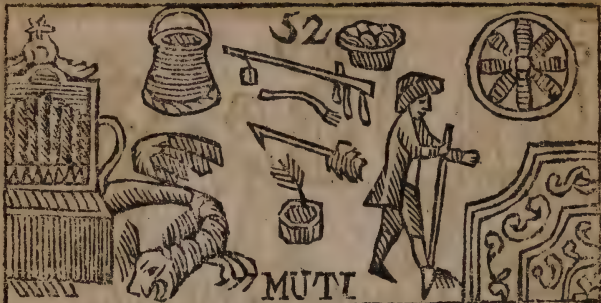 52
MUTI